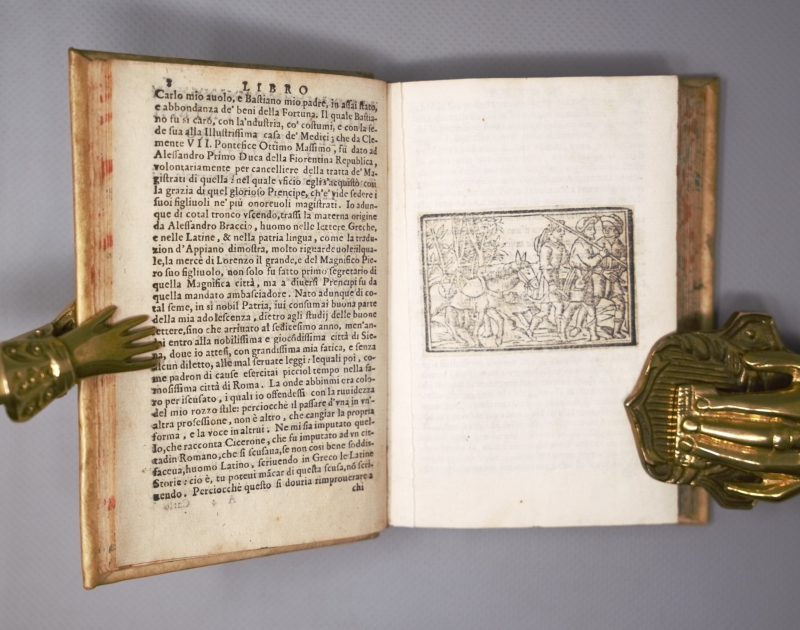 8 LIBRO
Carlo mio auolo, e Bastiano mio padre, in assai stato,
e abbondanza de' beni della Fortuna. Il quale Bastia-
no fu sì caro, con la'ndustria, co' costumi, e con la fe-
de sua alla Illustrissima casa de' Medici; che da Cle-
mente VII. Pontefice Ottimo Massimo, fù dato ad
Alessandro Primo Duca della Fiorentina Republica,
volontariamente per cancelliere della tratta de' Ma-
gistrati di quella: nel quale vficio egli s'acquistò con
la grazia di quel glorioso Prencipe, ch'e' vide sedere i
suoi figliuoli ne' più onoreuoli magistrati. Io adun-
que di cotal tronco vscendo, trassi la materna origine
da Alessandro Braccio, huomo nelle lettere Greche,
e nelle Latine, & nella patria lingua, come la tradu-
zion d'Appiano dimostra, molto riguardeuole: ilqua-
le, la mercè di Lorenzo il grande, e del Magnifico Pie-
ro suo figliuolo, non solo fu fatto primo segretario di
quella Magnifica città, ma a diuersi Prencipi fu da
quella mandato ambasciadore. Nato adunque di co-
tal seme, in sì nobil Patria, iui consumai buona parte
della mia adolescenza, dietro agli studij delle buone
lettere, fino che arriuato al sedicesimo anno, men'an-
dai entro alla nobilissima e giocõdissima città di Sie-
na, doue io attesi, con grandissima mia fatica, e senza
alcun diletto, alle mal seruate leggi: lequali poi, co-
me padron di cause esercitai picciol tempo nella fa-
mosissima città di Roma. La onde abbinmi era colo-
ro per iscusato, i quali io offendessi con la ruuidezza
del mio rozzo stile: perciocchè il passare d'vna in vn'-
altra professione, non è altro, che cangiar la propria
forma, e la voce in altrui. Ne mi sia imputato quel-
lo, che racconta Cicerone, che fu imputato ad vn cit-
tadin Romano, che si scusaua, se non così bene soddis-
faceua, huomo Latino, scriuendo in Greco le Latine
Storie: cio è, tu poteui mãcar di questa scusa, nõ scri-
uendo. Perciocchè questo si douria rimprouerare a
chi